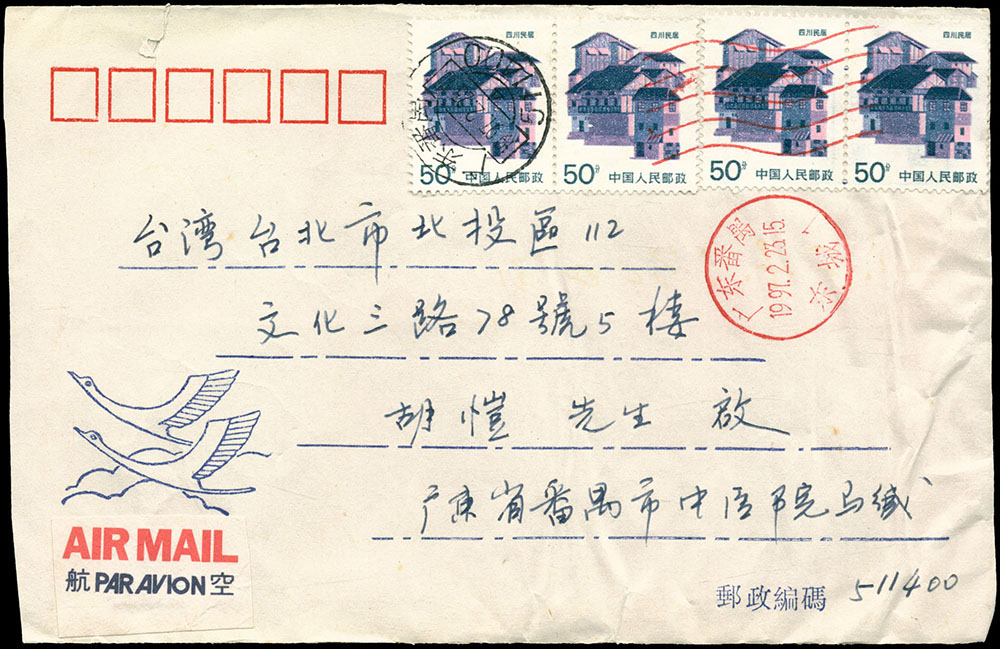 四川民居 四川民居 四川民居
50分 中国人民邮政 50分 中国人民邮政 50分 中国人民邮政 50分 中国人民邮政
511400
台湾台北市北投區112
广东番禺
1997.2.23.15.
文化三路78號5楼
胡愷 先生 啟
广東省番禺市中医院马缄
AIR MAIL
航 PAR AVION 空
郵政編碼 511400